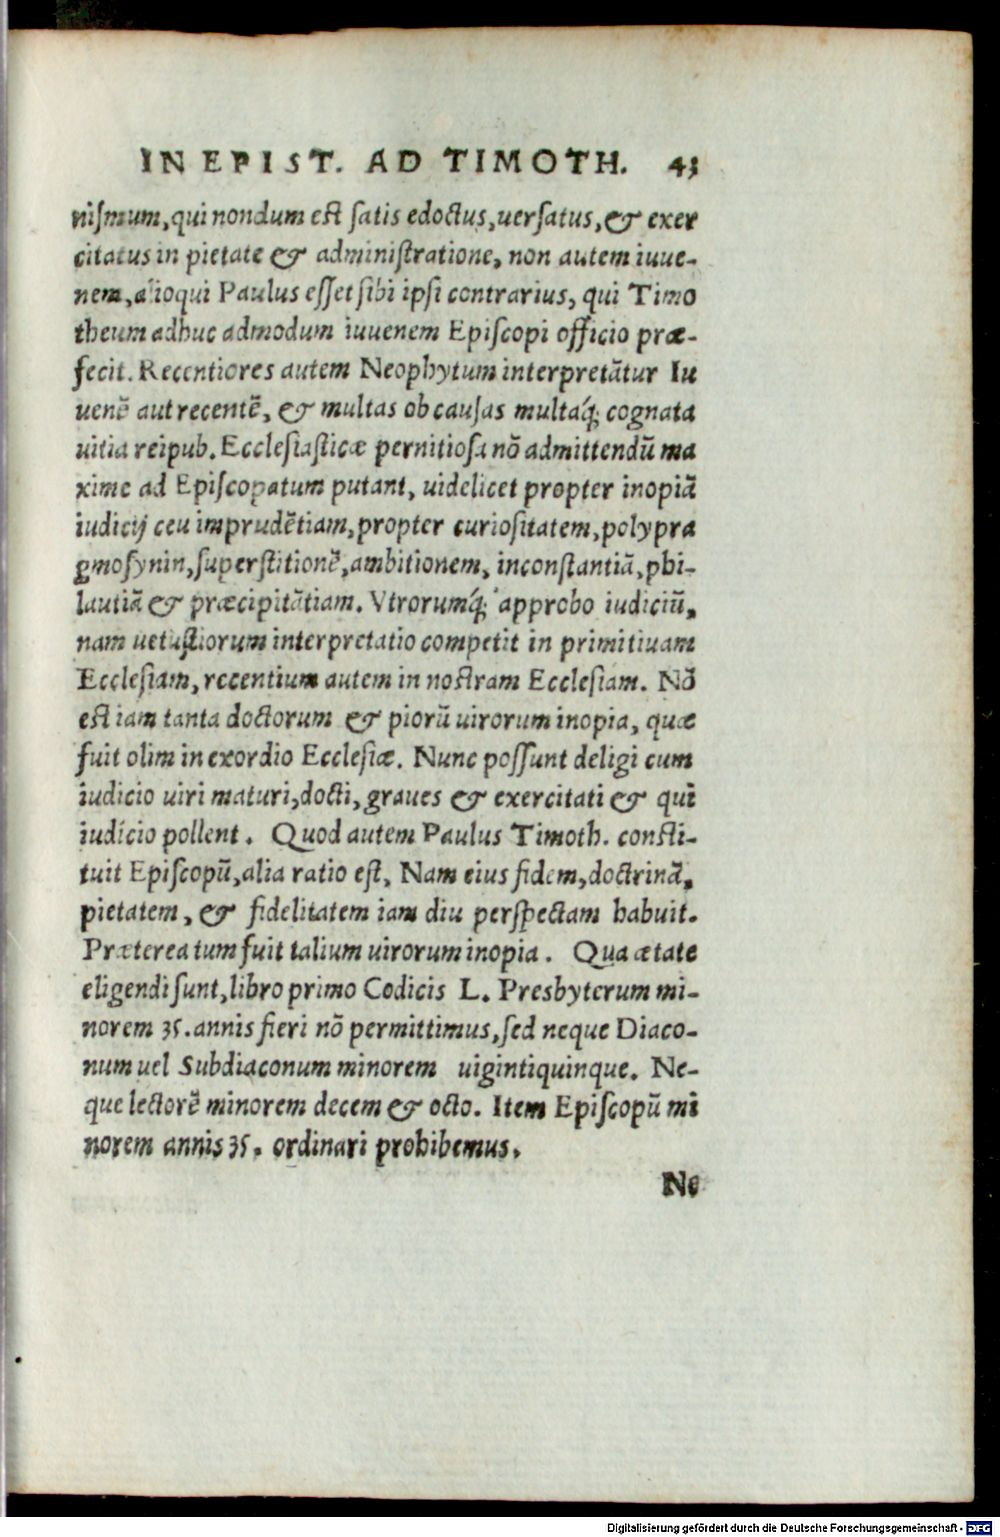 IN EPIST. AD TIMOTH. 43
nismum, qui nondum est satis edoctus, uersatus, & exer
citatus in pietate & administratione, non autem iuue-
nem, alioqui Paulus esset sibi ipsi contrarius, qui Timo
theum adhuc admodum iuuenem Episcopi officio præ-
fecit. Recentiores autem Neophytum interpretãtur Iu
uenẽ aut recentẽ, & multas ob causas multaq́; cognata
uitia reipub. Ecclesiasticæ pernitiosa nõ admittendũ ma
xime ad Episcopatum putant, uidelicet propter inopiã
iudicij ceu imprudẽtiam, propter curiositatem, polypra
gmosynin, superstitionẽ, ambitionem, inconstantiã, phi-
lautiã & præcipitãtiam. Vtrorumq́; approbo iudiciũ,
nam uetustiorum interpretatio competit in primitiuam
Ecclesiam, recentium autem in nostram Ecclesiam. Nõ
est iam tanta doctorum & piorũ uirorum inopia, quæ
fuit olim in exordio Ecclesiæ. Nunc possunt deligi cum
iudicio uiri maturi, docti, graues & exercitati & qui
iudicio pollent. Quod autem Paulus Timoth. consti-
tuit Episcopũ, alia ratio est, Nam eius fidem, doctrinã,
pietatem, & fidelitatem iam diu perspectam habuit.
Præterea tum fuit talium uirorum inopia. Qua ætate
eligendi sunt, libro primo Codicis L. Presbyterum mi-
norem 35. annis fieri nõ permittimus, sed neque Diaco-
num uel Subdiaconum minorem uigintiquinque. Ne-
que lectorẽ minorem decem & octo. Item Episcopũ mi
norem annis 35. ordinari prohibemus.
Ne
Digitalisierung gefördert durch die Deutsche Forschungsgemeinschaft - DFG